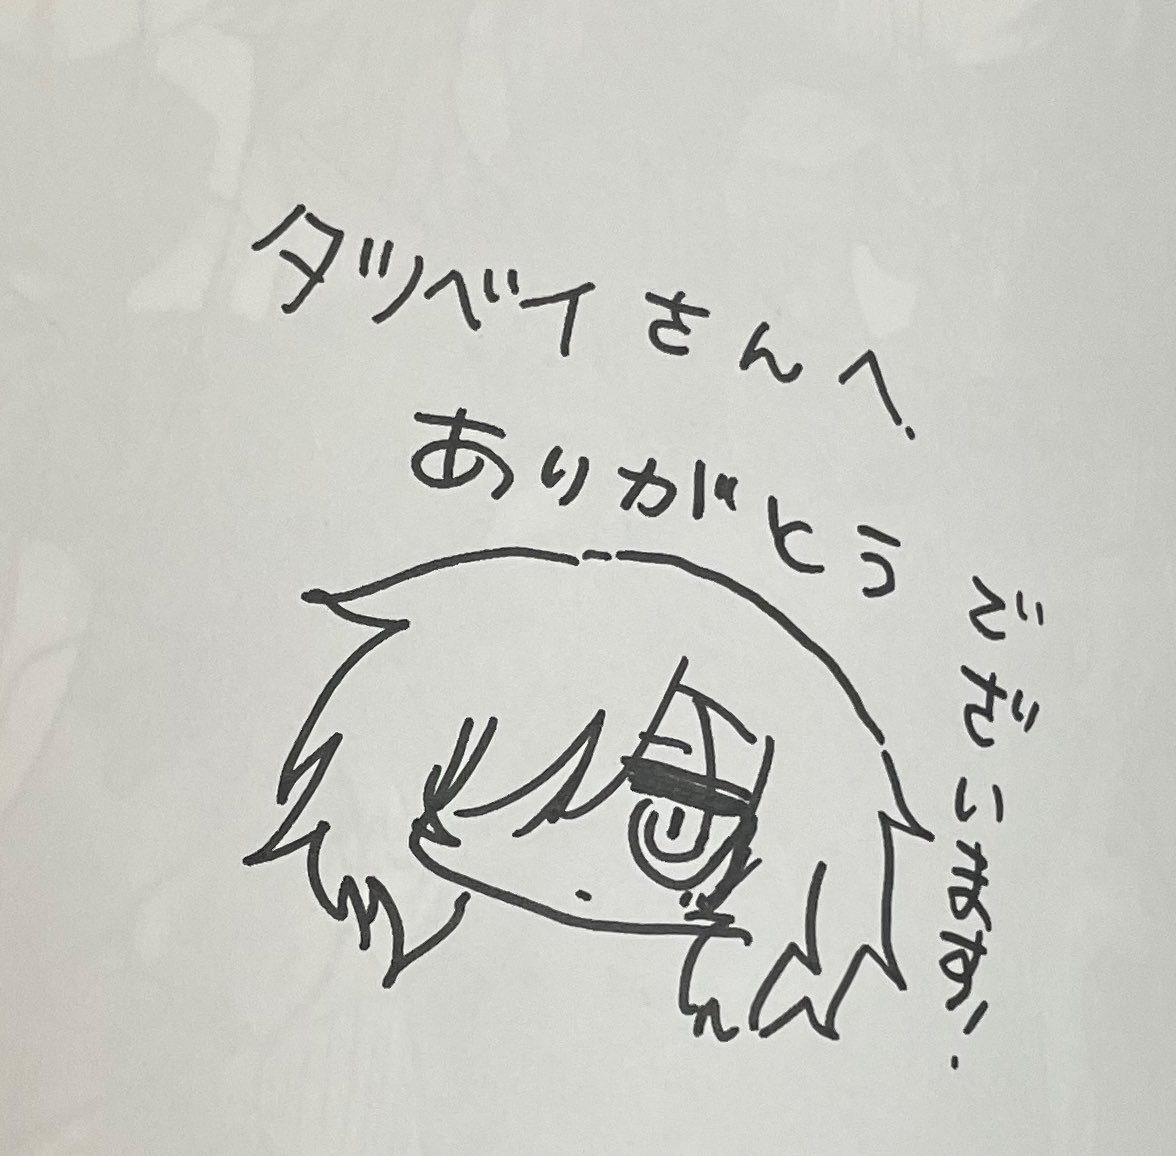 タツベイさんへ.
ありがとう
ございます!